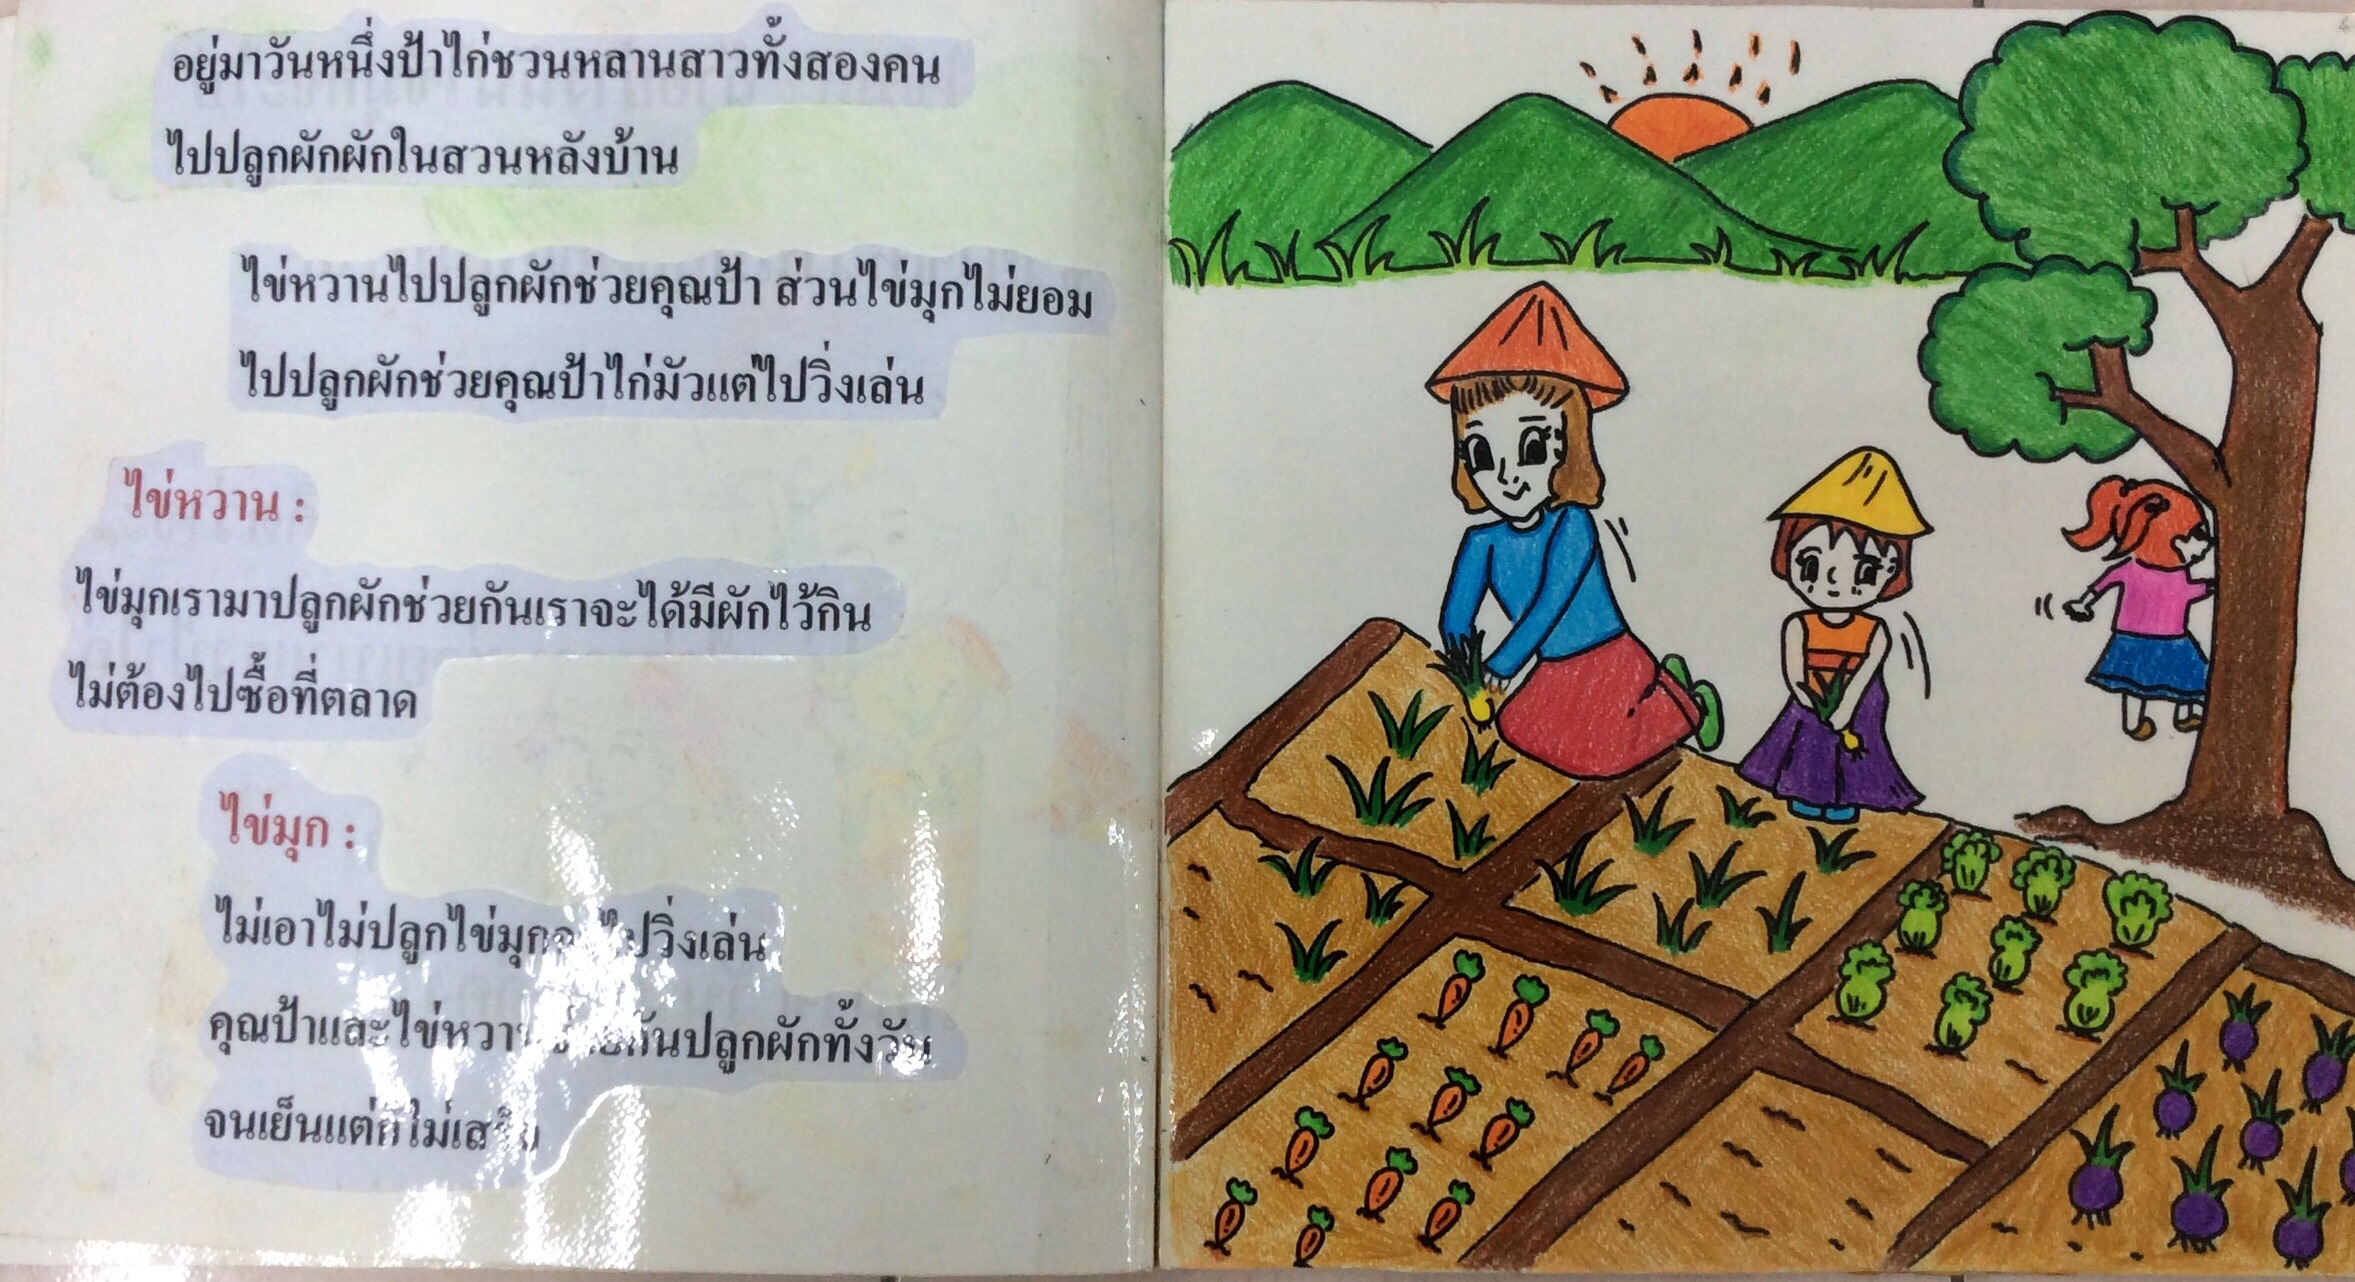 อยู่มาวันหนึ่งป้าไก่ชวนหลานสาวทั้งสองคน
ไปปลูกผักผักในสวนหลังบ้าน
ไข่หวานไปปลูกผักช่วยคุณป้า ส่วนไข่มุกไม่ยอม
ไปปลูกผักช่วยคุณป้าไก่มัวแต่ไปวิ่งเล่น
ไข่หวาน :
ไข่มุกเรามาปลูกผักช่วยกันเราจะได้มีผักไว้กิน
ไม่ต้องไปซื้อที่ตลาด
ไข่มุก :
ไม่เอาไม่ปลูกไข่มุก ไปวิ่งเล่น
คุณป้าและไข่หวานช่วยกันปลูกผักทั้งวัน
จนเย็นแต่ก็ไม่เสร็จ